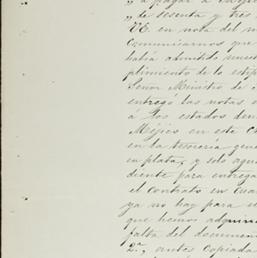 „ a pagar a
„ de sesenta y tres
VE en nota del m
Comunicarnos que
había admitido nues
plimiento de lo estip
Señor Ministro de
entregó las notas
á los estados de
Méjico en esta C
en la tesorería gene
en plata, y solo aque
diente para entrega
el contrato en cuan
ya no hay para
que hemos adquiri
falta del documen
2.ª, antes Copiada